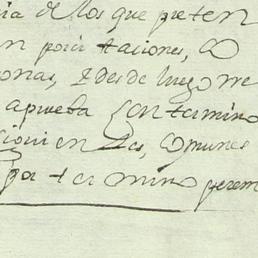 ia de los que preten
n por citaciones, Co
onas, Edesde luego me
aprueba Con termino
siguientes, Comunes
por termino perem